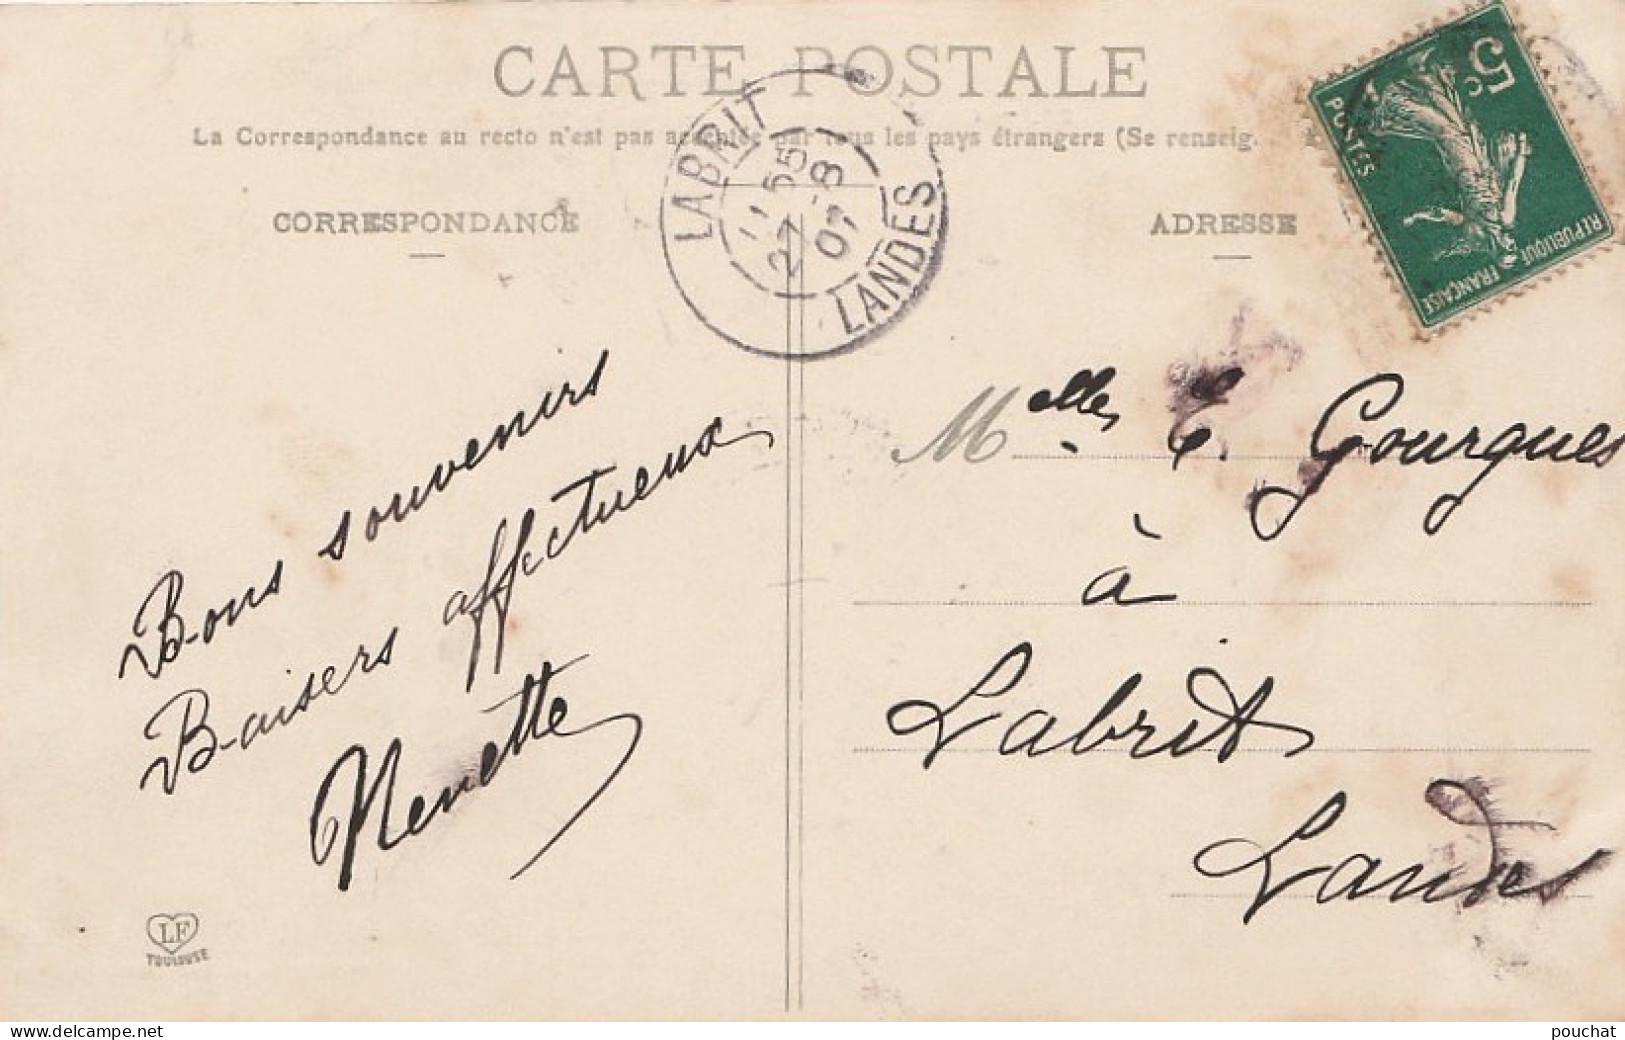 CARTE POSTALE
La Correspondance au recto n'est pas acceptée par tous les pays étrangers (Se renseig.
CORRESPONDANCE
ADRESSE
LABRIT
11 55
27 - 8
07
LANDES
5c
POSTES
REPUBLIQUE FRANÇAISE
Bons souvenirs
Baisers affectueux
Nenette
Melles G. Gourgues
à
Labrit
Landes
LF
TOULOUSE
delcampe.net
pouchat